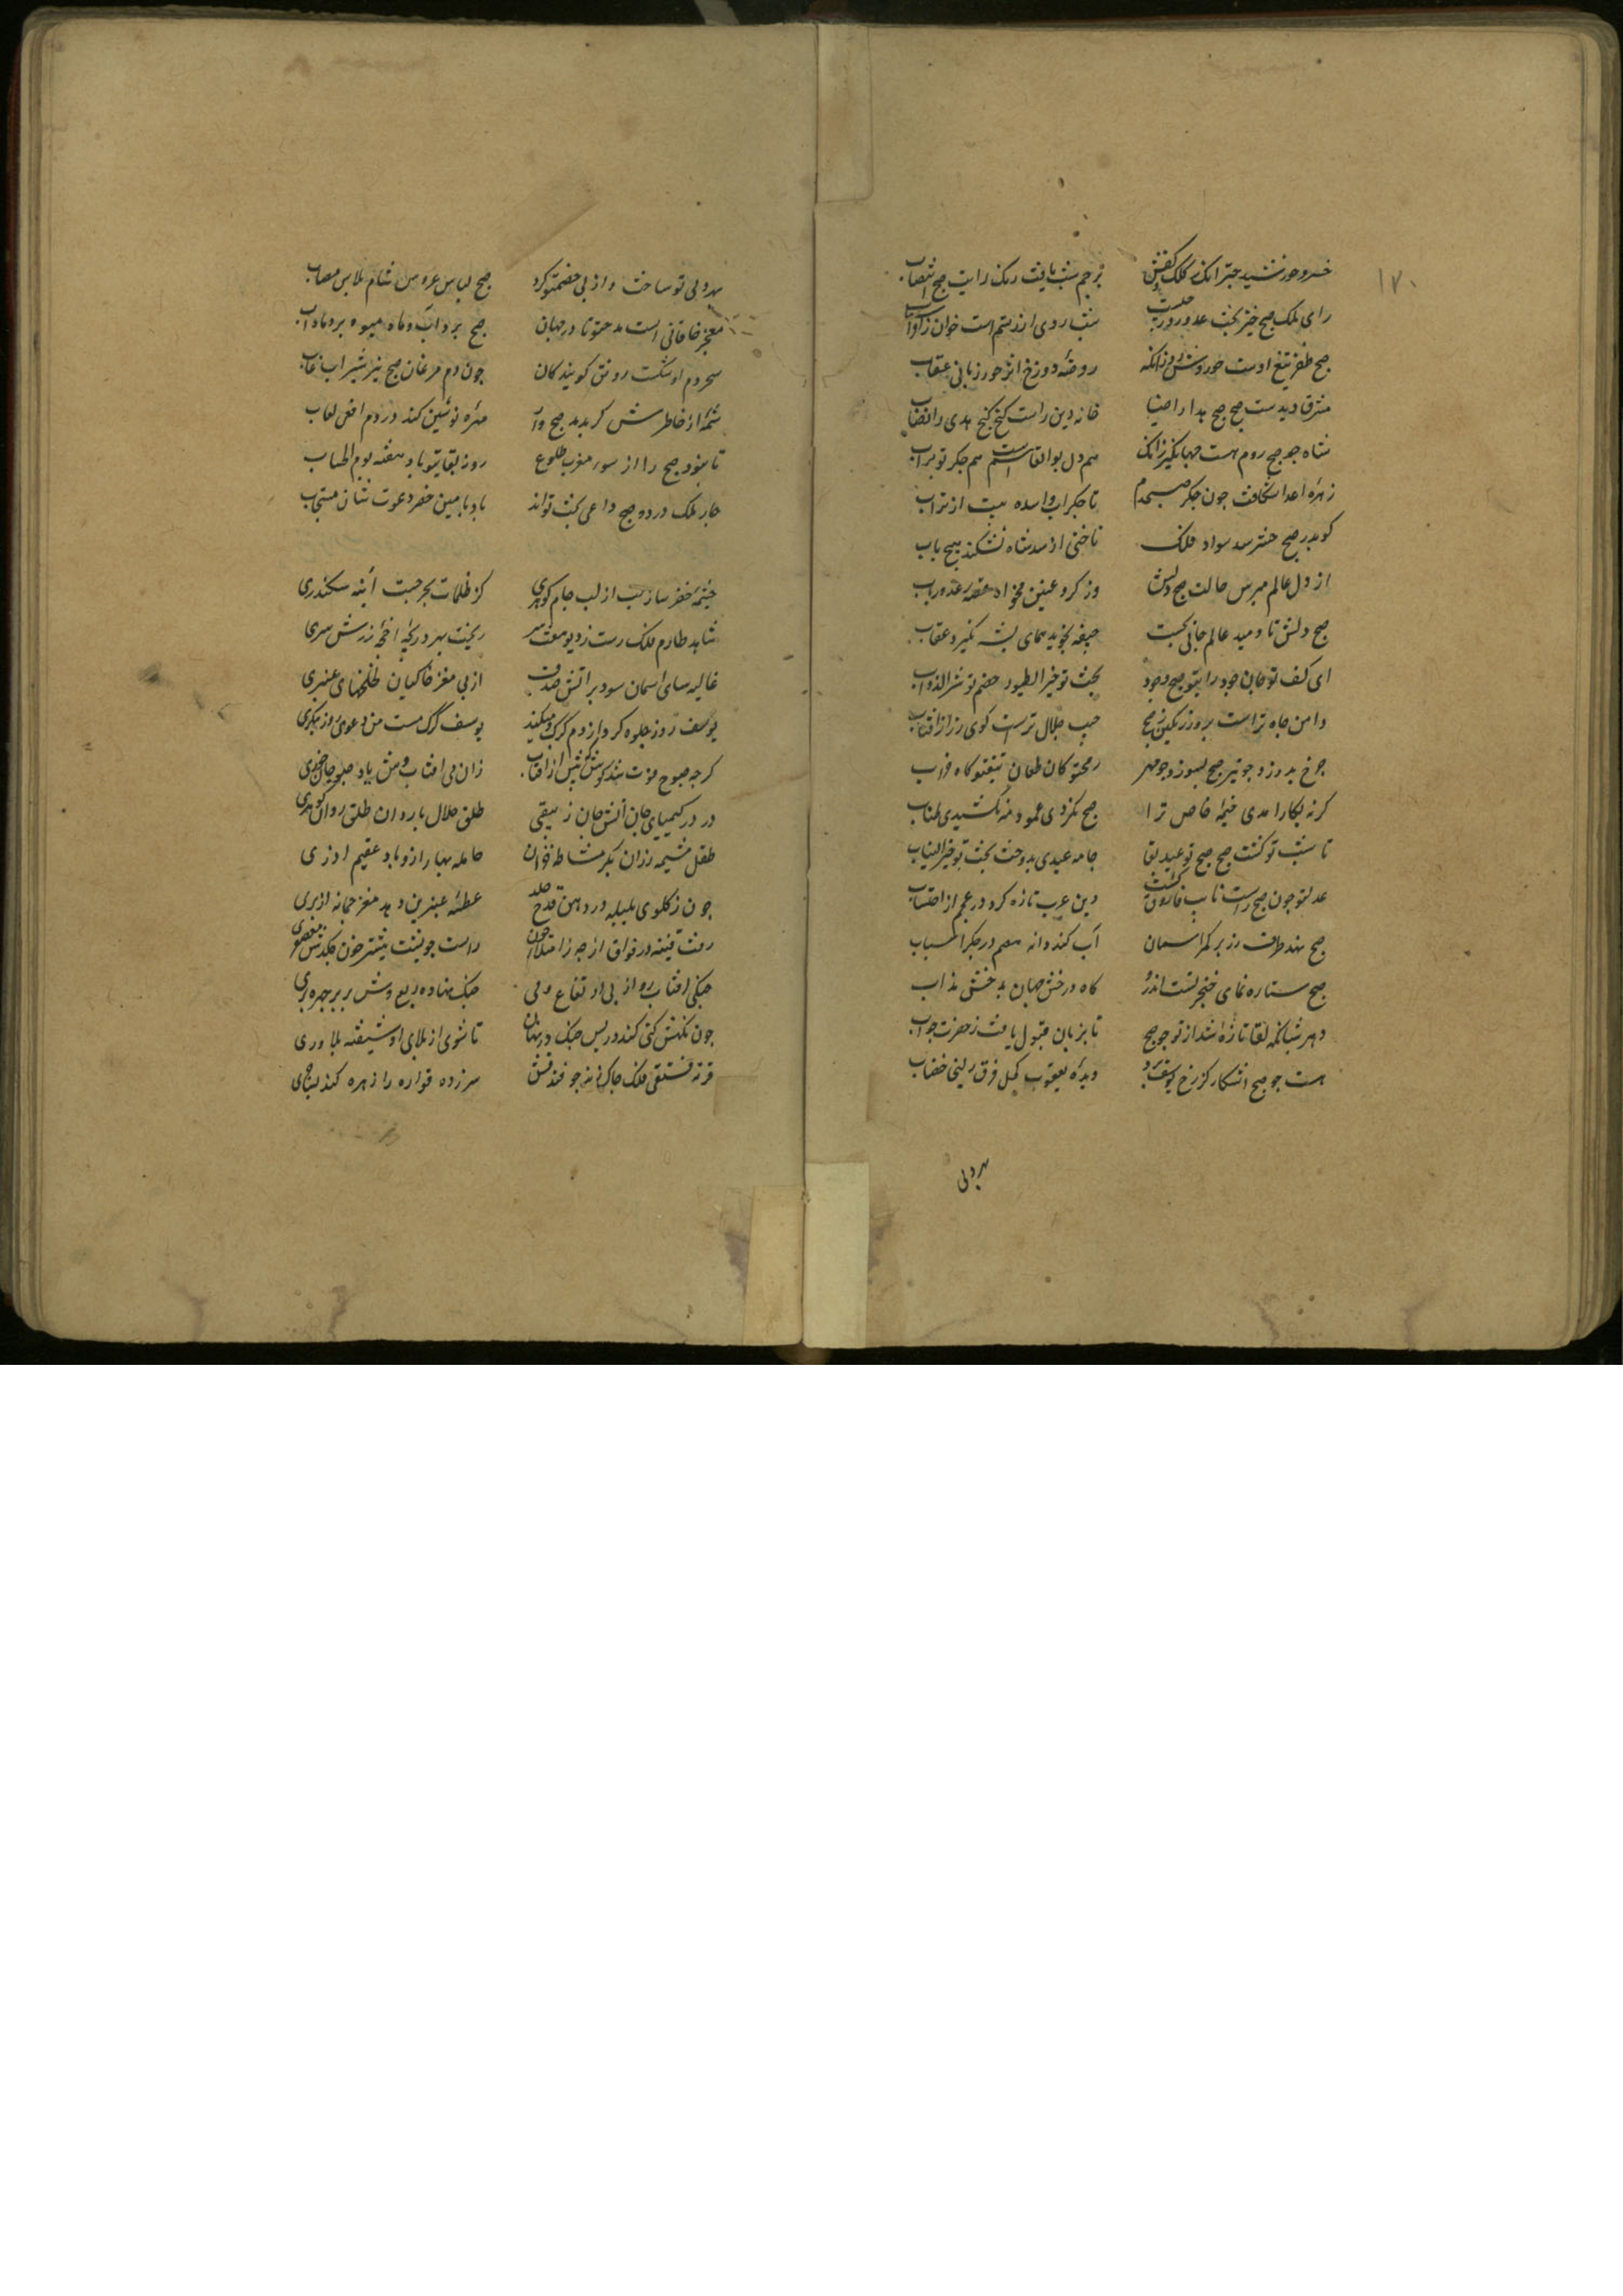 ١٧٠
خسرو خورشید چتر انک ز کلک کفش
پرچم شب یافت رنک رایت صبح انتصاب
رای ملک صبح خیز بخت عدو روز
شب روی از رستم است خواب ز افراسیاب
صبح ظفر تیغ اوست حوروش و روز زانکه
روضهٔ دوزخ اثر حور زبانی عقاب
مشرق دین راست صبح صبح هدی را ضیا
خانه دین راست کنج کنج هدی را نصاب
شاه چو صبح دوم هست جهانگیر زانک
هم دل بوالقاسم است هم جگر بوتراب
زهرهٔ اعدا شکافت چون جگر صبحدم
تا جگر آب را سده ببست از تراب
کوید صبح فلک
تا ختنی از شاه نشکند هیچ باب
از دل عالم مپرس حالت صبح دلش
وز کرهٔ عنین مخواه قصهٔ عذر رباب
صبح دلش تا دمید عالم جافی نجست
جیفه نجوید همای پشه نگیرد عقاب
ای کف تو جان جود رای تو صبح وجود
بخت تو خیر الطیور خصم تو شر الدواب
دامن جاه تراست پروز زرین صبح
جیب جلال تراست کوی زر از افتاب
چرخ بدوزد چو تیر صبح بسوزد چو مهر
رمح تو کاه طعان تیغ تو کاه ضراب
کرنه بکار آمدی خیمهٔ خاص ترا
صبح نکردی عمود مه نکشیدی طناب
تا شب تو کشت صبح صبح تو عید بقا
جامه عیدی بدوخت بخت تو خیر الثیاب
عدل تو چون صبح راست نایب فاروق کشت
دین عرب تازه کرد در عجم از احتساب
صبح نهد طرف زر بر کمر اسمان
آب کند دانه هضم در جگر اسیاب
صبح ستاره نمای خنجر تست اندرو
کاه درخش جهان بدخشی مذاب
دهر شبانکه لقا تازه شد از تو چو صبح
تا بزبان قبول یافت ز حضرت جواب
هست چو صبح اشکار کز رخ یوسف برد
دیدهٔ یعقوب کحل فرق زلیخا خضاب
مهر ولی
مهر ولی تو ساخت و از پی خصم تو کرد
صبح لباس عروس شام پلاس مصاب
معجز خاقانی است مدحت تو تا در جهان
صبح برد آب ماه میوه برد ماه آب
سحر دم او شکست رونق کویندکان
چون دم مرغان صبح نیز شیر اب غاب
شمهٔ از خاطرش کر بدمد صبح وار
مهره نوشین کند در دم افعی لعاب
تا نبود صبح را از سوی مغرب طلوع
روز بقای تو باد هفتهٔ یوم الحساب
چار ملک در دو صبح داعی بخت تواند
باد بامین خضر دعوت شان مستجاب
چشمهٔ خضر ساز لب از لب جام کوهری
کز ظلمات بحر جست آینه سکندری
شاهد طارم فلک رست ز دیو هفت سر
ریخت بهر دریچه اقچه زر شش سری
غالیه سای اسمان سود بر آتشین صدف
از پی مغز خاکیان لخلخهای عنبری
یوسف روز جلوه کرد از دم کرک و میکند
یوسف کرک مست من دعوی روز پیکری
کرچه صبوح فوت شد کوش که پیش از افتاب
زان می افتاب وش یاد صبوح جان خوری
درده کیمیای جان آتش جام زیبقی
طلق حلال باروان طلق روان کوهری
طفل مشیمه رزان بکر مشاطه خزان
حامله بهار ازو باد عقیم اذری
چون ز کلوی بلبله در دهن قدح
عطسه عنبرین دهد مغز جمانه از پری
رفت قنینه در فواق از چه ز امتلاء خون
راست چو پشت نیشتر خون چکدش معصفری
چنکی افتاب رو از پی ارتفاع می
چنک نهاده ربع وش بر بر و چهره بری
چون نکش کشی کند در پس چنک درنهان
تا شوی از بلای او شیفته بلاوری
قرته فستقی فلک چاک زند چو فندقش
سر زده قواره را زهره کند بساحری